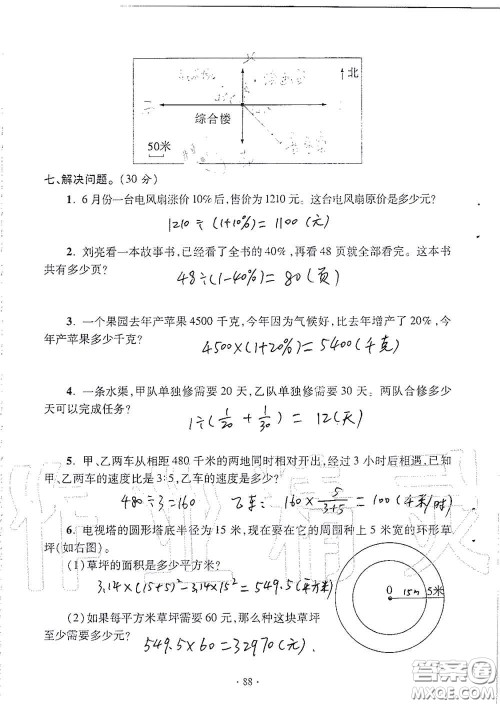 北
↑北
综合楼
50米
七、解决问题。(30 分)
1. 6 月份一台电风扇涨价 10%后,售价为 1210 元。这台电风扇原价是多少元?
1210 ÷ (1+10%) = 1100 (元)
2. 刘亮看一本故事书,已经看了全书的 40%,再看 48 页就全部看完。这本书
共有多少页?
48 ÷ (1-40%) = 80 (页)
3. 一个果园去年产苹果 4500 千克,今年因为气候好,比去年增产了 20%,今
年产苹果多少千克?
4500×(1+20%) = 5400 (千克)
4. 一条水渠,甲队单独修需要 20 天,乙队单独修需要 30 天。两队合修多少
天可以完成任务?
1÷(1/20 + 1/30) = 12 (天)
5. 甲、乙两车从相距 480 千米的两地同时相对开出,经过 3 小时后相遇,已知
甲、乙两车的速度比是 3∶5,乙车的速度是多少?
480 ÷ 3 = 160 乙车: 160 × 5/(3+5) = 100 (千米/时)
6. 电视塔的圆形塔底半径为 15 米,现在要在它的周围种上 5 米宽的环形草
坪(如右图)。
(1) 草坪的面积是多少平方米?
3.14×(15+5)² - 3.14×15² = 549.5 (平方米)
0 15m 5米
(2) 如果每平方米草坪需要 60 元,那么种这块草坪
至少需要多少元?
549.5 × 60 = 32970 (元).
· 88 ·
作业精灵
答案圈
MXQE.COM